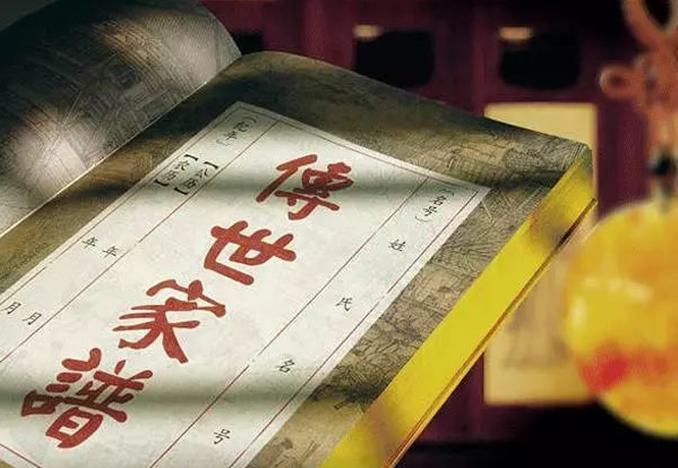 (名号)
姓氏名号
傳世家譜
(纪年)
【公历】
【农历】
年年
月月